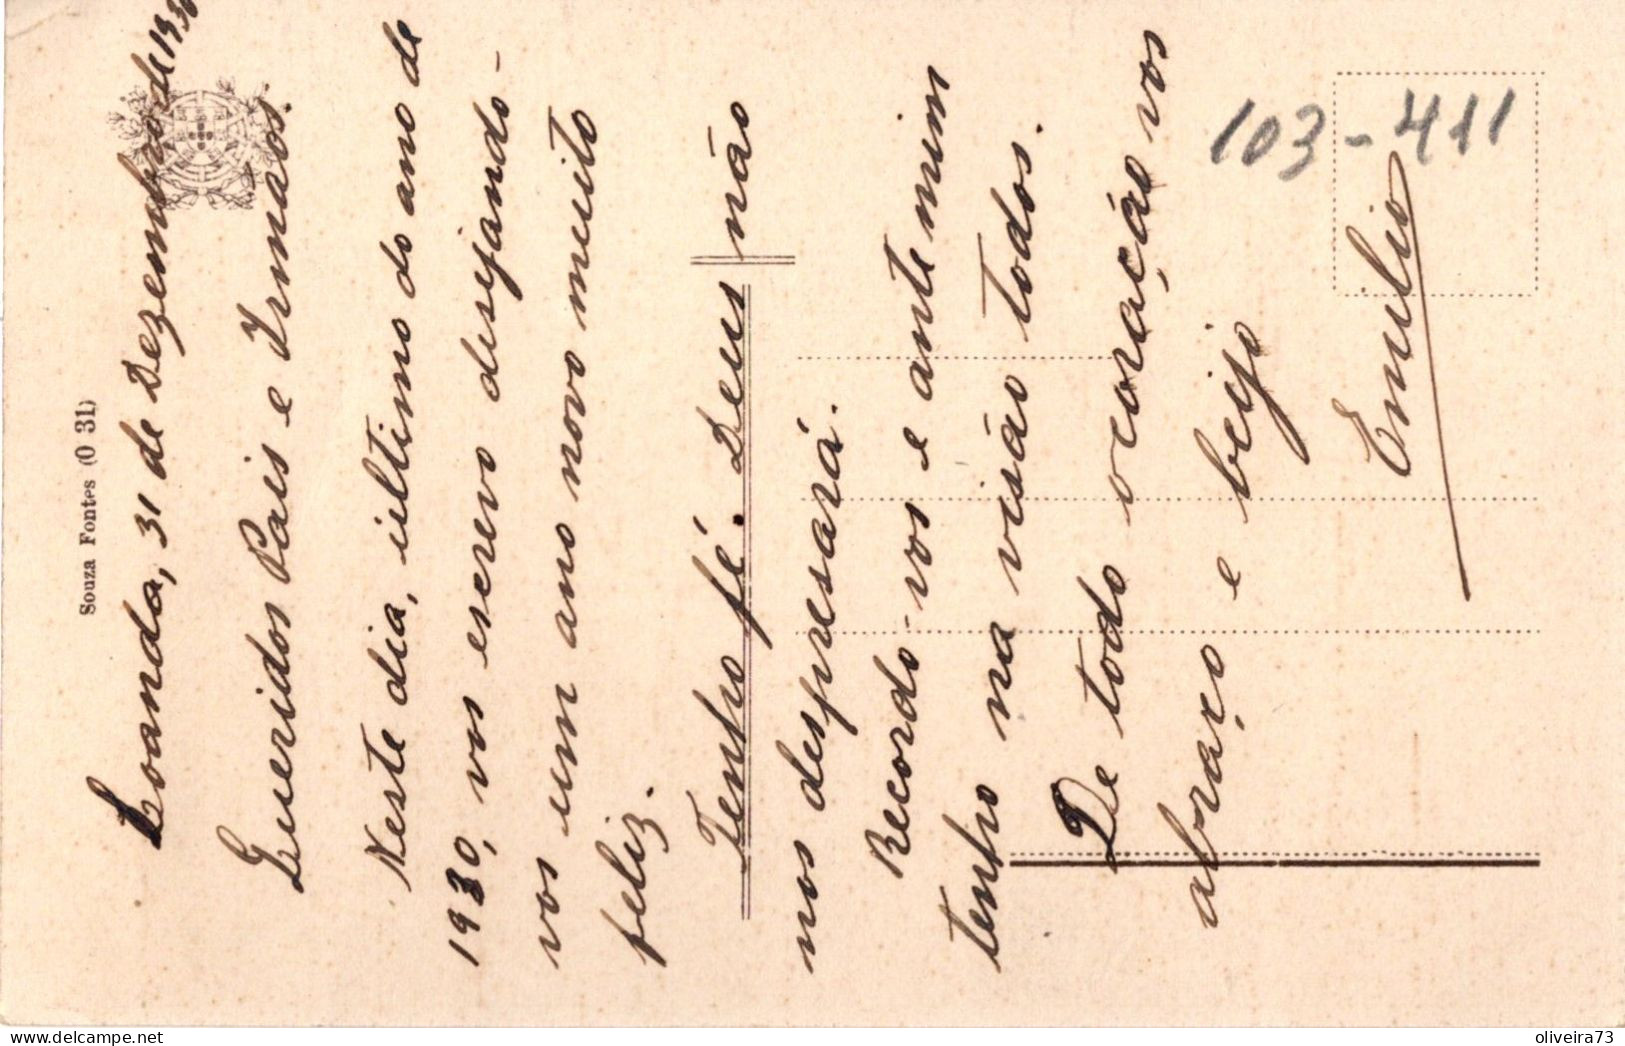 Loanda, 31 de Dezembro de 1930
Queridos Pais e Irmãos.
Neste dia, último do ano de
1930, vos escrevo desejando-
vos um ano novo muito
feliz.
Tenho fé. Deus não
nos despresará.
Recordo-vos e ante mim
tenho na visão todos.
De todo o coração vos
abraço e beijo
Emilio
Souza Fontes (O 31)
103-411
delcampe.net
oliveira73